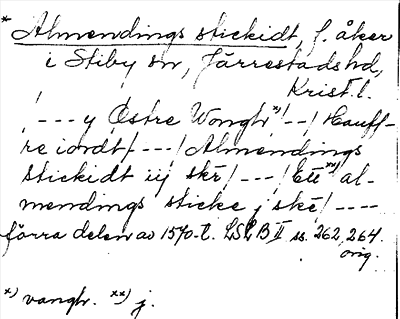 * Almendings stickidt, f. åker
i Stiby sn, Järrestads hd,
Krist. l.
/---y Østre Wongh x) /--/ Hauff-
re iordt /---/ Almendings
stickidt iij skē /---/ Ett xx) al-
mendings sticke j skē /----
förra delen av 1570-t. LSLB II ss. 262, 264.
orig.
x) vangh. xx) j.